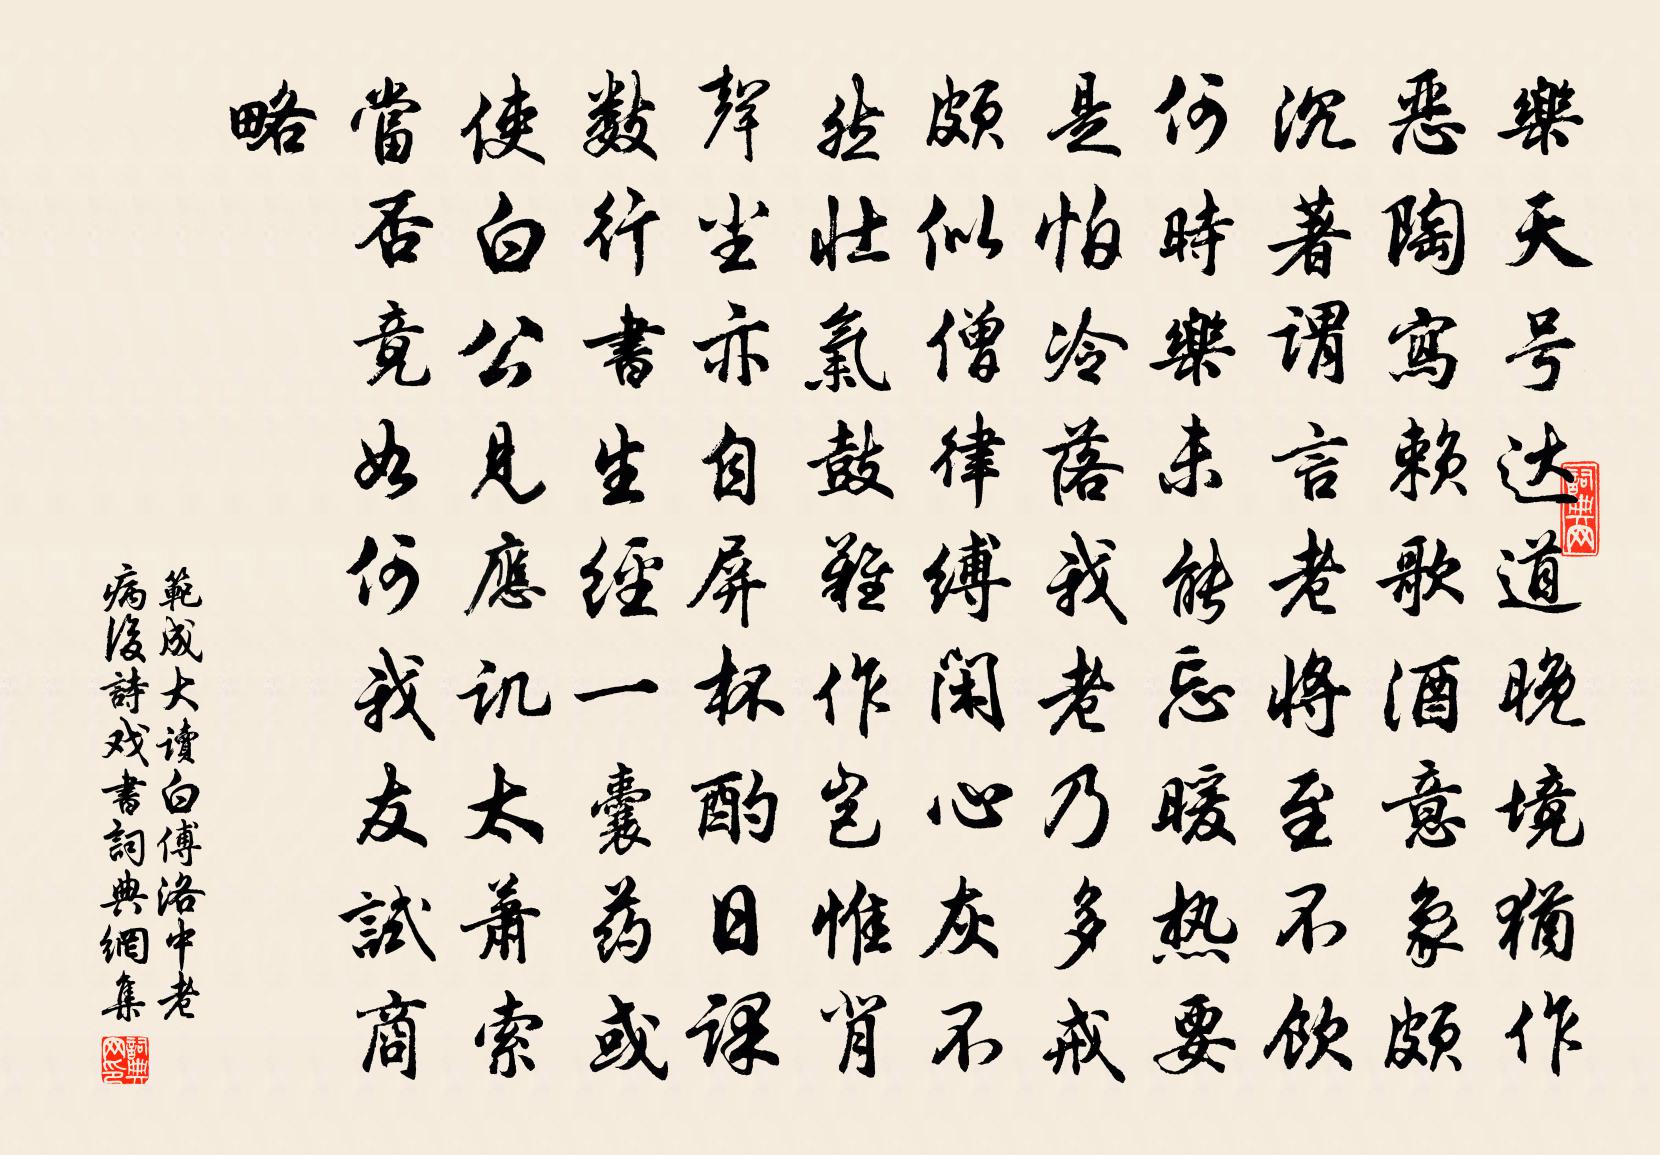 樂天号达道晚境猶作
恶陶寫赖歌酒意象颇
沉著谓言老將至不饮
何時樂未能忘暖热要
是怕冷落我老乃多戒
颇似僧律縛闲心灰不
然壮氣鼓難作岂惟肖
聲尘亦自屏杯酌日课
数行書生經一囊药或
使白公見應讥太萧索
當否竟如何我友試商
略
範成大读白傅洛中老
病後詩戏書詞典網集
詞典网
詞典网印